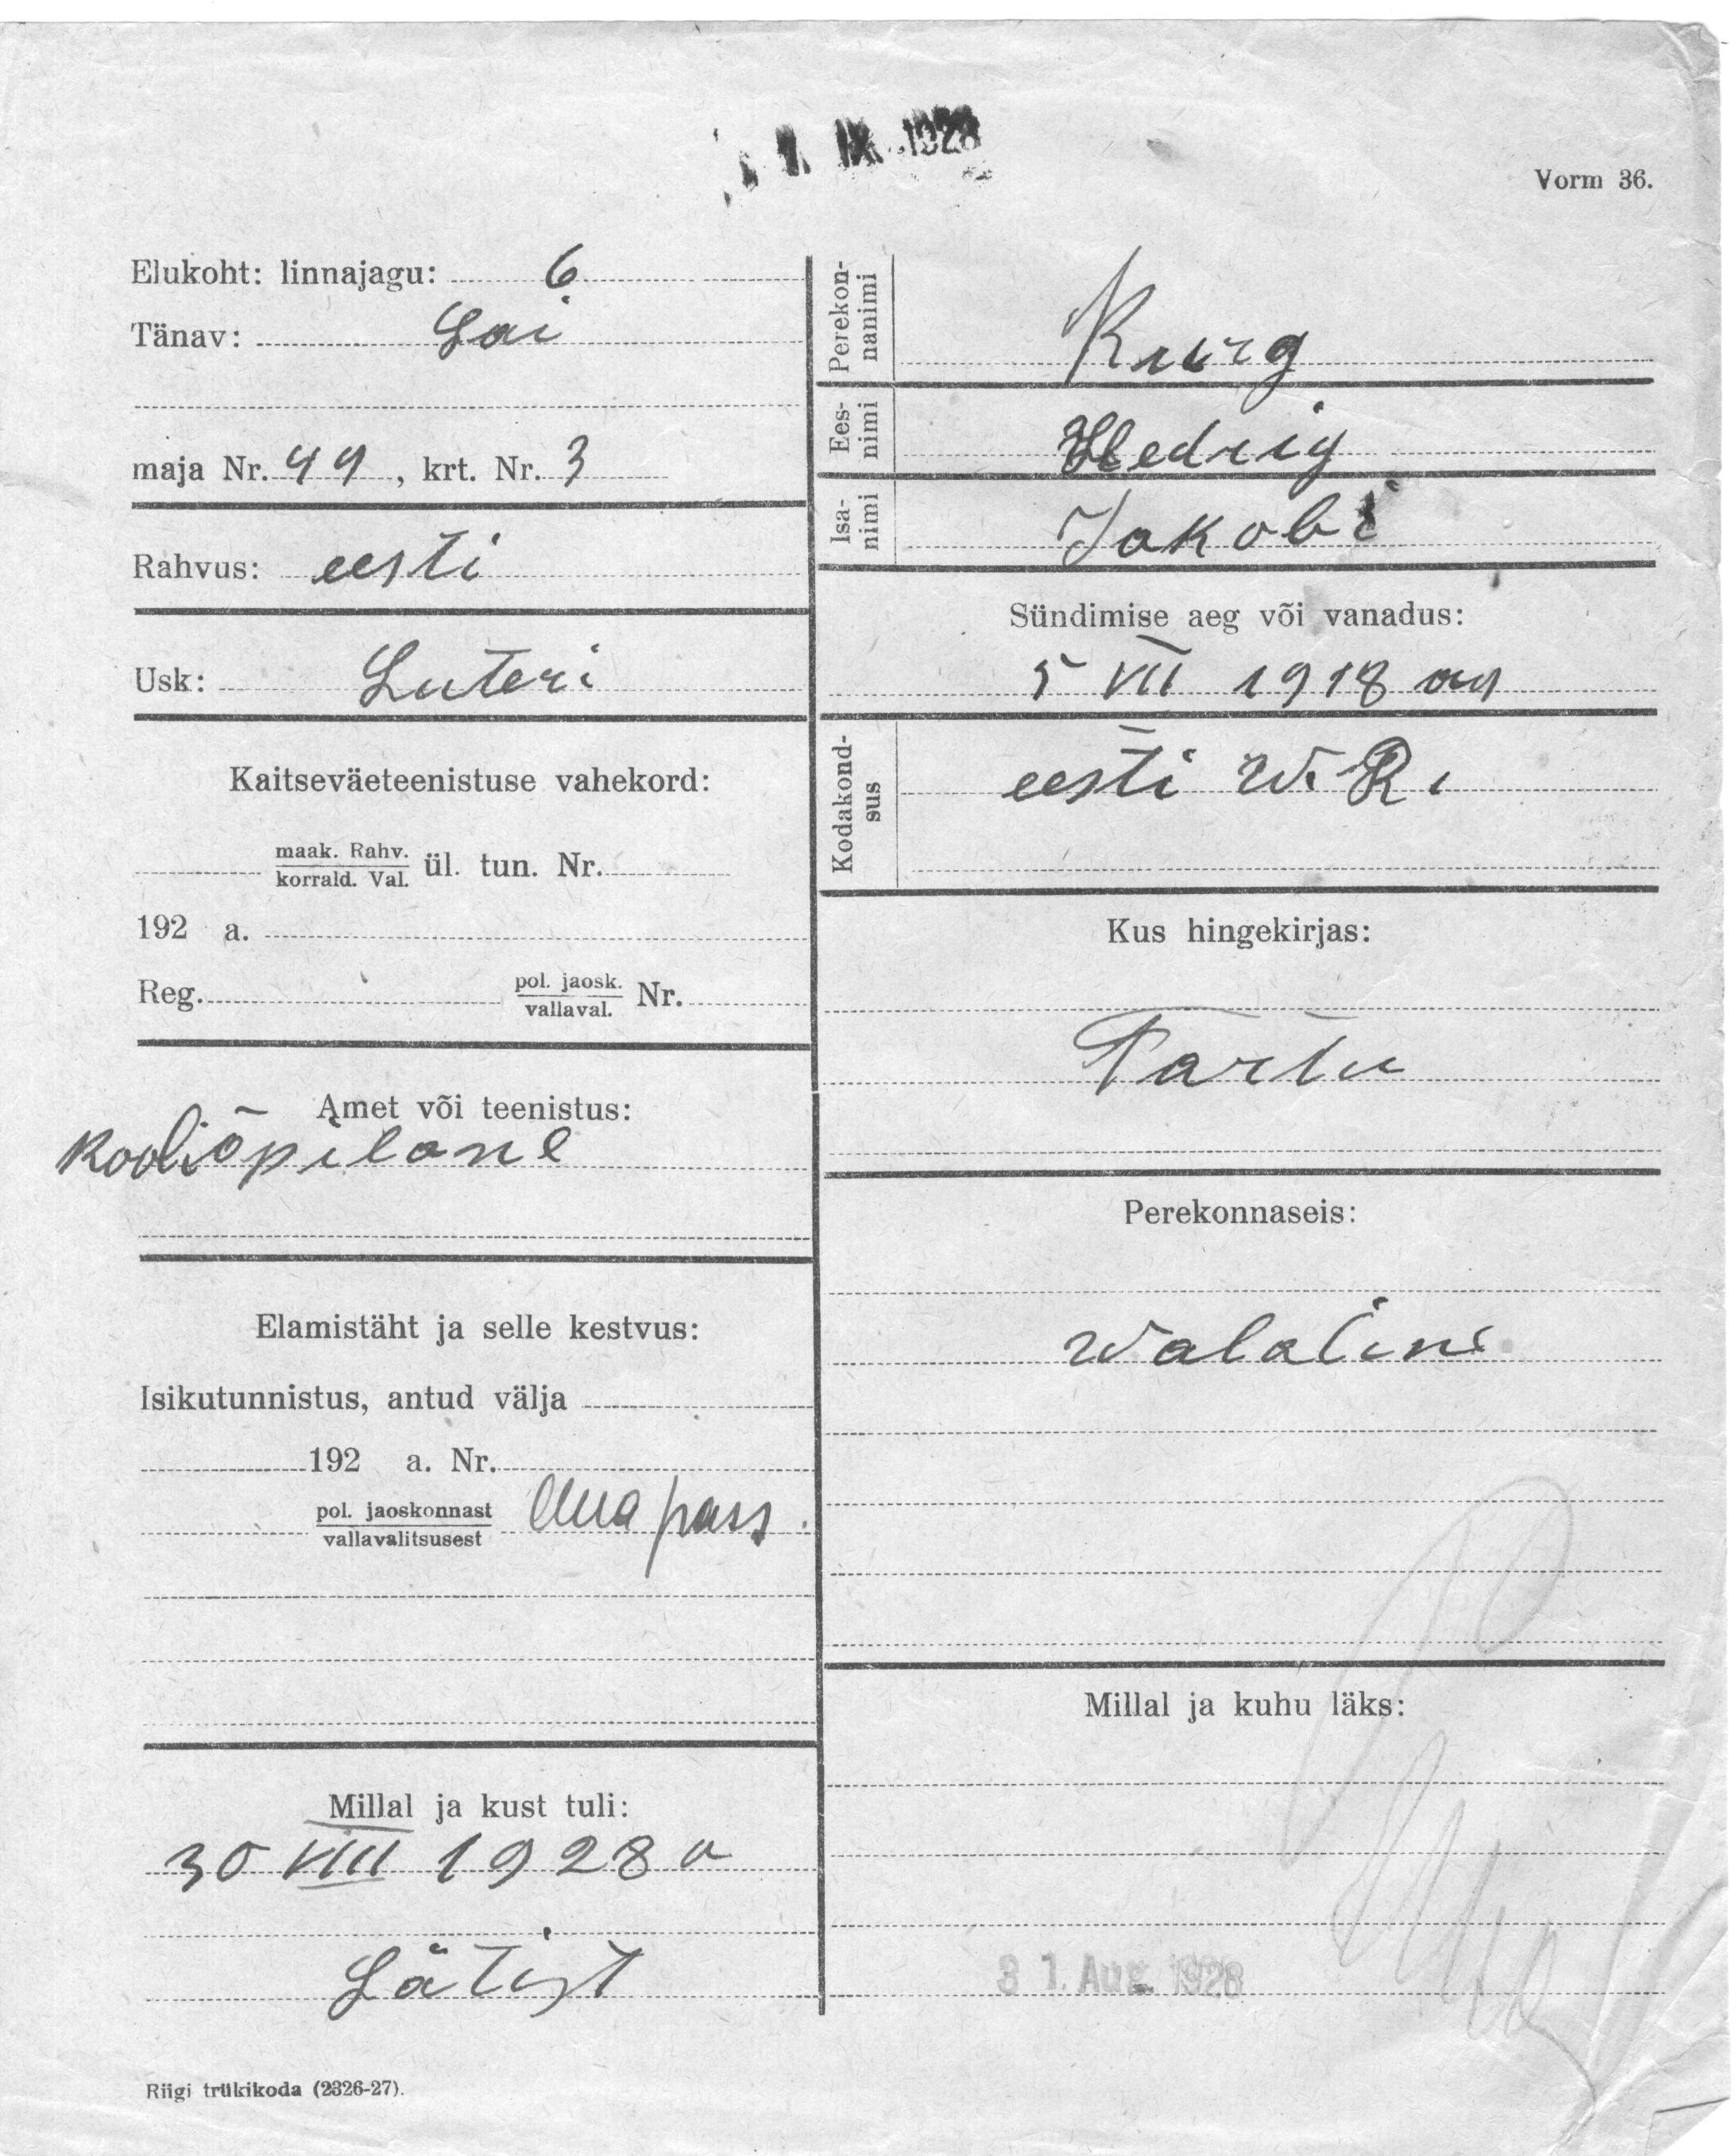 1. IX 1928
Vorm 36.
Elukoht: linnajagu: 6
Tänav: Lai
maja Nr. 49, krt. Nr. 3
Rahvus: eesti
Usk: Luteri
Kaitseväeteenistuse vahekord:
maak. Rahv.
korrald. Val. ül. tun. Nr.
192 a.
Reg. pol. jaosk.
vallaval. Nr.
Amet või teenistus:
Kooliõpilane
Elamistäht ja selle kestvus:
Isikutunnistus, antud välja
192 a. Nr.
pol. jaoskonnast
vallavalitsusest pass
Millal ja kust tuli:
30 VIII 1928 a
Lätist
Riigi trükikoda (2326-27).
Perekon-
nanimi
Kurg
Ees-
nimi
Hedvig
Isa-
nimi
Jakobi
Sündimise aeg või vanadus:
5 VII 1918
Kodakond-
sus
eesti W. R.
Kus hingekirjas:
Tartu
Perekonnaseis:
Walaline
Millal ja kuhu läks:
31. Aug. 1928